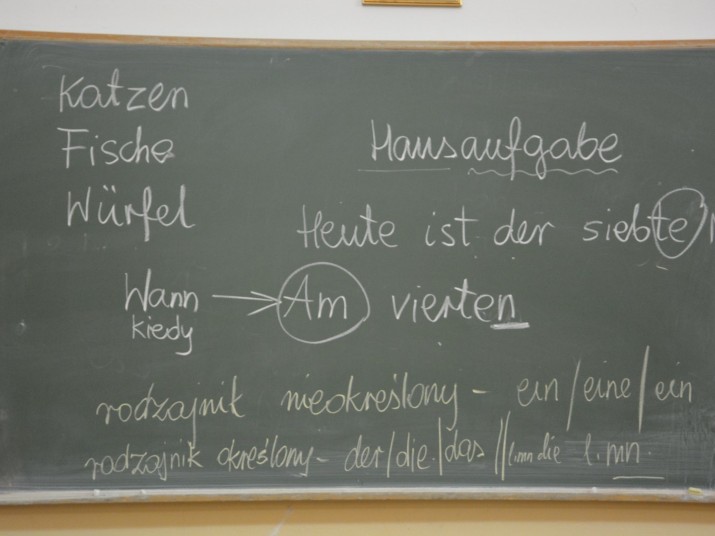 Katzen
Fische
Würfel
Hausaufgabe
Heute ist der siebte
Wann → Am vierten
kiedy
rodzajnik nieokreślony - ein/eine/ein
rodzajnik określony - der/die/das // l.mn die l.mn.